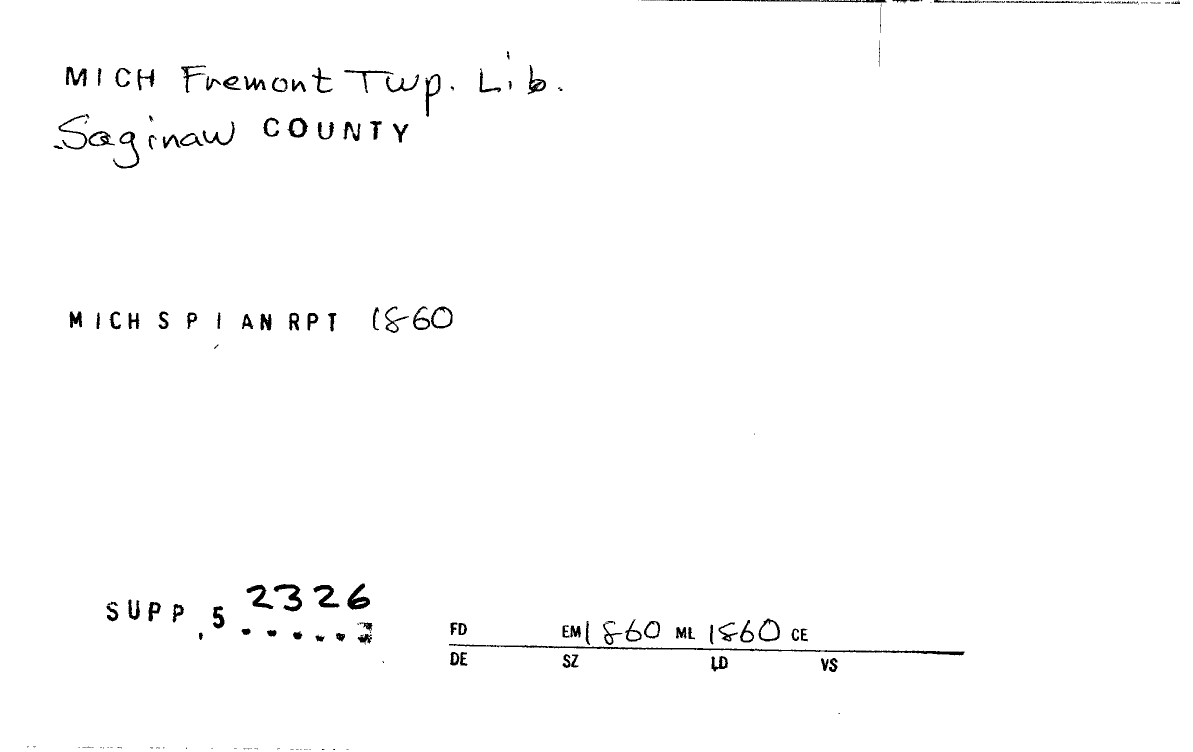 MICH Fremont Twp. Lib.
Saginaw COUNTY
MICH S P I AN RPT 1860
SUPP. 5 2326
FD EM 1860 ML 1860 CE
DE SZ LD VS